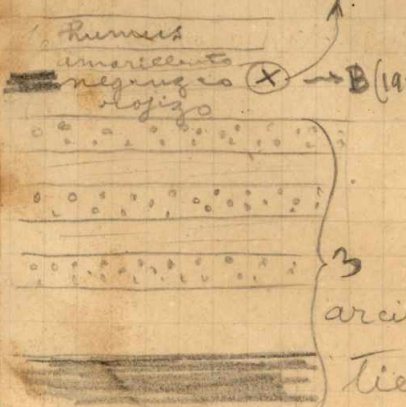 humus
amarillento
negruzco ⊗ → B (19
rojizo
3
arci
tie